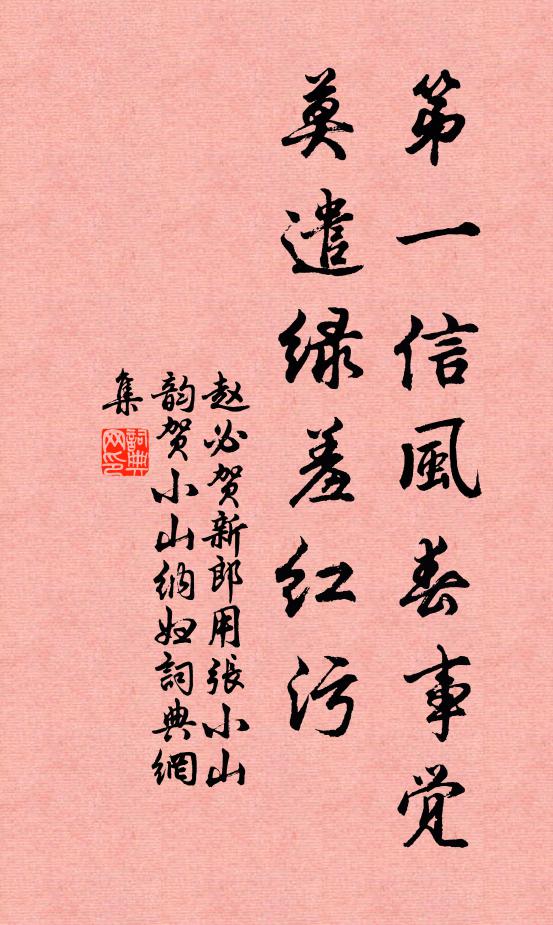 第一信風春事觉
莫遣绿羞红污
赵必贺新郎用張小山
韵贺小山纳妇詞典網
集
詞典网印